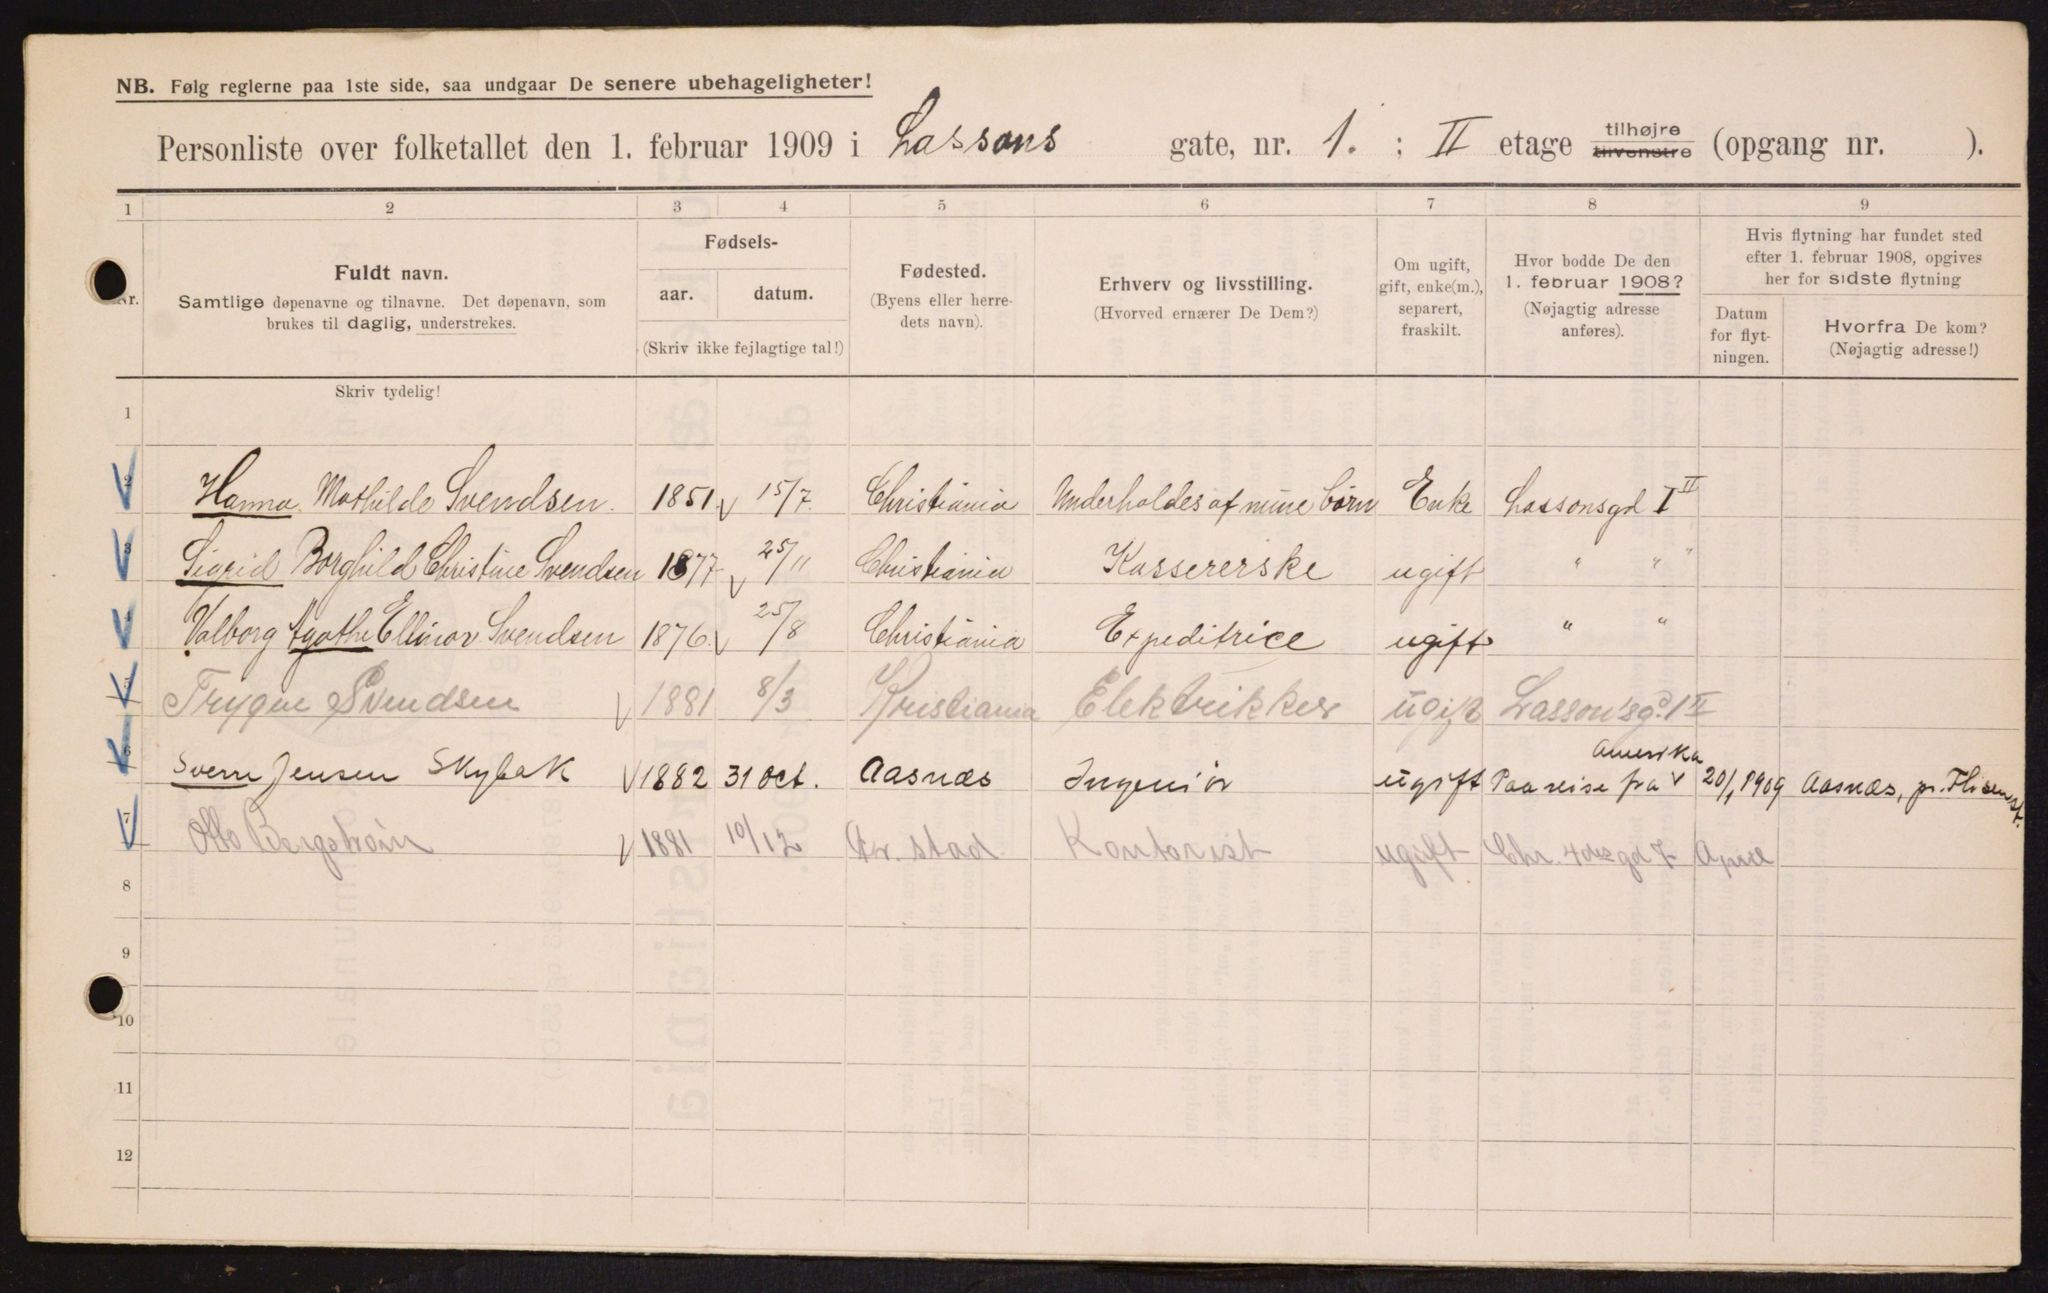 NB. Følg reglerne paa 1ste side, saa undgaar De senere ubehageligheter!
Personliste over folketallet den 1. februar 1909 i Lassons gate, nr. 1. ; II etage tilhøjre tilvenstre (opgang nr. ).
1 2 3 4 5 6 7 8 9
Nr.
Fuldt navn.
Samtlige døpenavne og tilnavne. Det døpenavn, som
brukes til daglig, understrekes.
Fødsels-
aar. datum.
(Skriv ikke fejlagtige tal!)
Fødested.
(Byens eller herre-
dets navn).
Erhverv og livsstilling.
(Hvorved ernærer De Dem?)
Om ugift,
gift, enke(m.),
separert,
fraskilt.
Hvor bodde De den
1. februar 1908?
(Nøjagtig adresse
anføres).
Hvis flytning har fundet sted
efter 1. februar 1908, opgives
her for sidste flytning
Datum
for flyt-
ningen.
Hvorfra De kom?
(Nøjagtig adresse!)
Skriv tydelig!
1
2 Hanna Mathilde Svendsen. 1851 15/7. Christiania Underholdes af mine børn Enke Lassonsgd I II
3 Sigrid Borghild Christine Svendsen 1877 25/11 Christiania Kassererske ugift " "
4 Valborg Agathe Ellinor Svendsen 1876. 25/8 Christiania Expeditrice ugift " "
5 Trygve Svendsen 1881 8/3 Kristiania Elektrikker ugift Lassonsgd. 1 II
6 Sverre Jensen Skybak 1882 31 Oct. Aasnæs Ingeniør ugift Paa reise fra Amerika 20/1 1909 Aasnæs, pr. Flisen st.
7 Otto Bergstrøm 1881 10/12 Fr. stad Kontorist ugift Chr. 4des gd 7 April
8
9
10
11
12